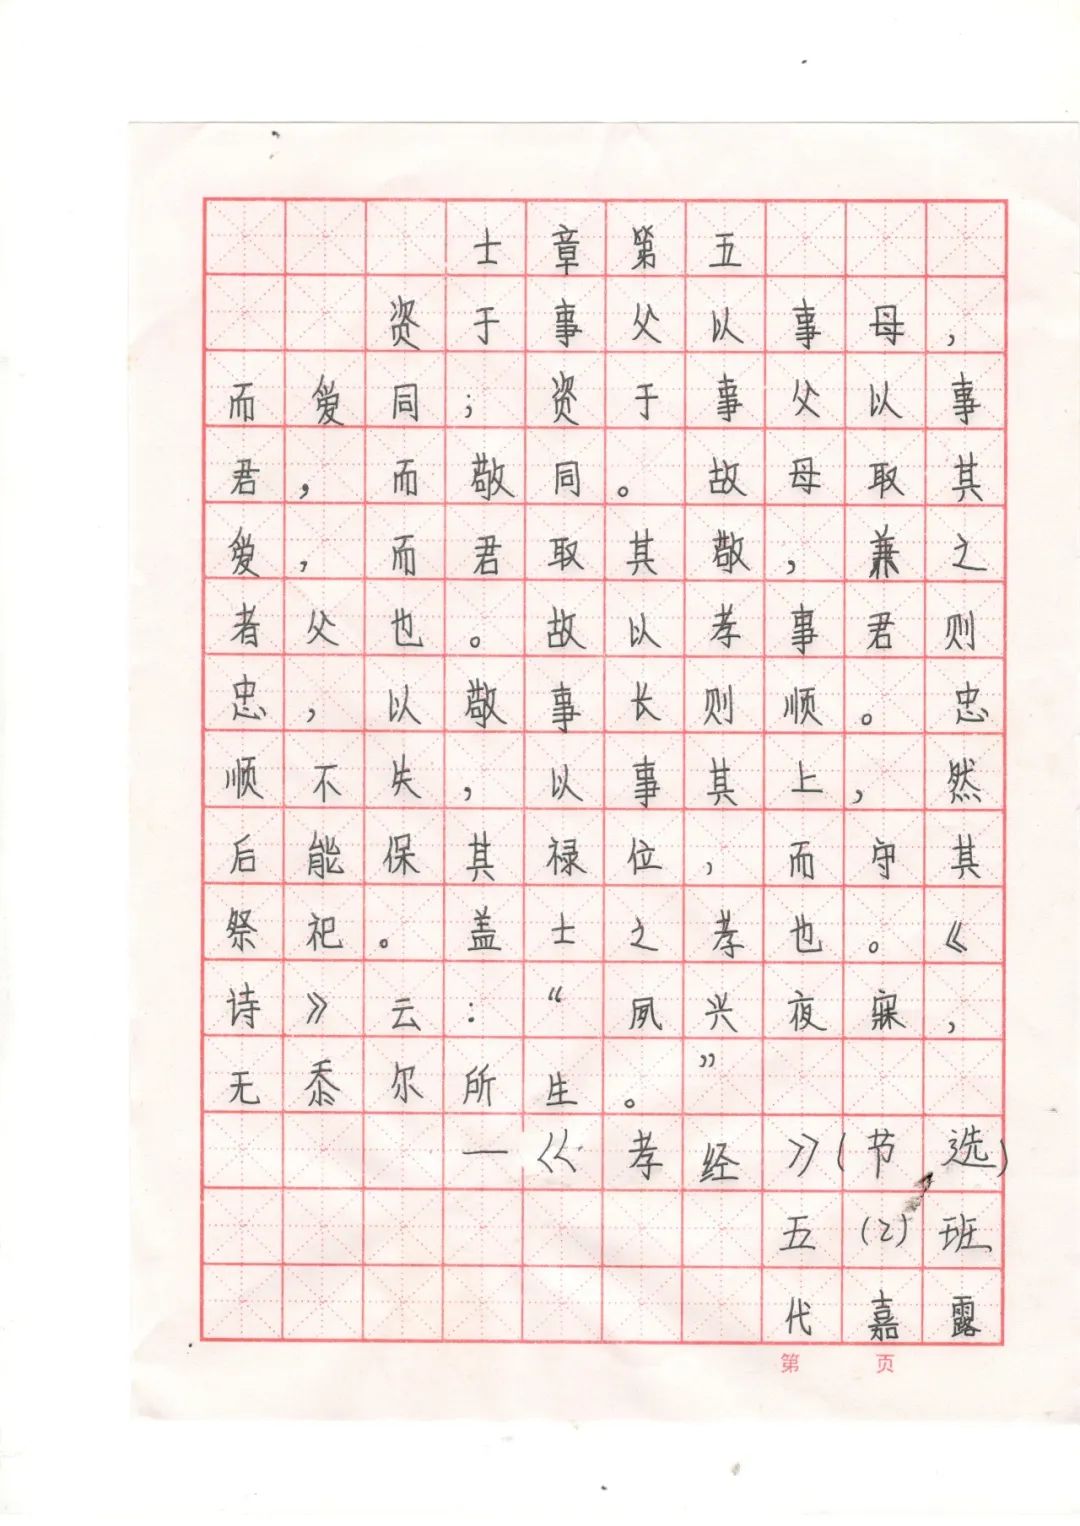 士章第五
资于事父以事母，
而爱同；资于事父以事
君，而敬同。故母取其
爱，而君取其敬，兼之
者父也。故以孝事君则
忠，以敬事长则顺。忠
顺不失，以事其上，然
后能保其禄位，而守其
祭祀。盖士之孝也。《
诗》云：“夙兴夜寐，
无忝尔所生。”
—《孝经》(节选)
五(2)班
代嘉露
第 页